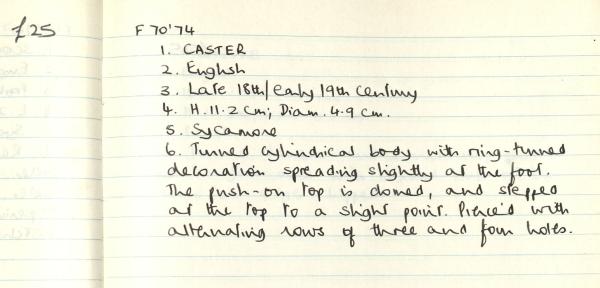 £25
F 70'74
1. CASTER
2. English
3. Late 18th/early 19th century
4. H. 11.2 cm; Diam. 4.9 cm.
5. Sycamore
6. Turned cylindrical body with ring-turned
decoration spreading slightly at the foot.
The push-on top is domed, and stepped
at the top to a slight point. Pierc'd with
alternating rows of three and four holes.